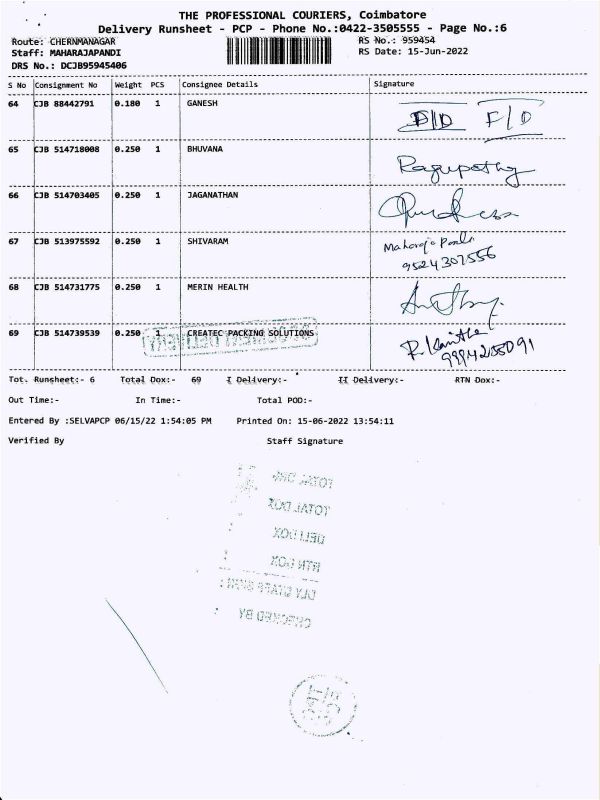 THE PROFESSIONAL COURIERS, Coimbatore
Delivery Runsheet - PCP - Phone No.:0422-3505555 - Page No.:6
Route: CHERNMANAGAR RS No.: 959454
Staff: MAHARAJAPANDI RS Date: 15-Jun-2022
DRS No.: DCJB95945406
S No Consignment No Weight PCS Consignee Details Signature
64 CJB 88442791 0.180 1 GANESH F/D
65 CJB 514718008 0.250 1 BHUVANA Ragupathy
66 CJB 514703405 0.250 1 JAGANATHAN
67 CJB 513975592 0.250 1 SHIVARAM 9524307556
68 CJB 514731775 0.250 1 MERIN HEALTH
69 CJB 514739539 0.250 1 CREATEC PACKING SOLUTIONS
Tot. Runsheet:- 6 Total Dox:- 69 I Delivery:- II Delivery:- RTN Dox:-
Out Time:- In Time:- Total POD:-
Entered By :SELVAPCP 06/15/22 1:54:05 PM Printed On: 15-06-2022 13:54:11
Verified By Staff Signature
TOTAL DOX
DELI DOX
RTN DOX
CHECKED BY